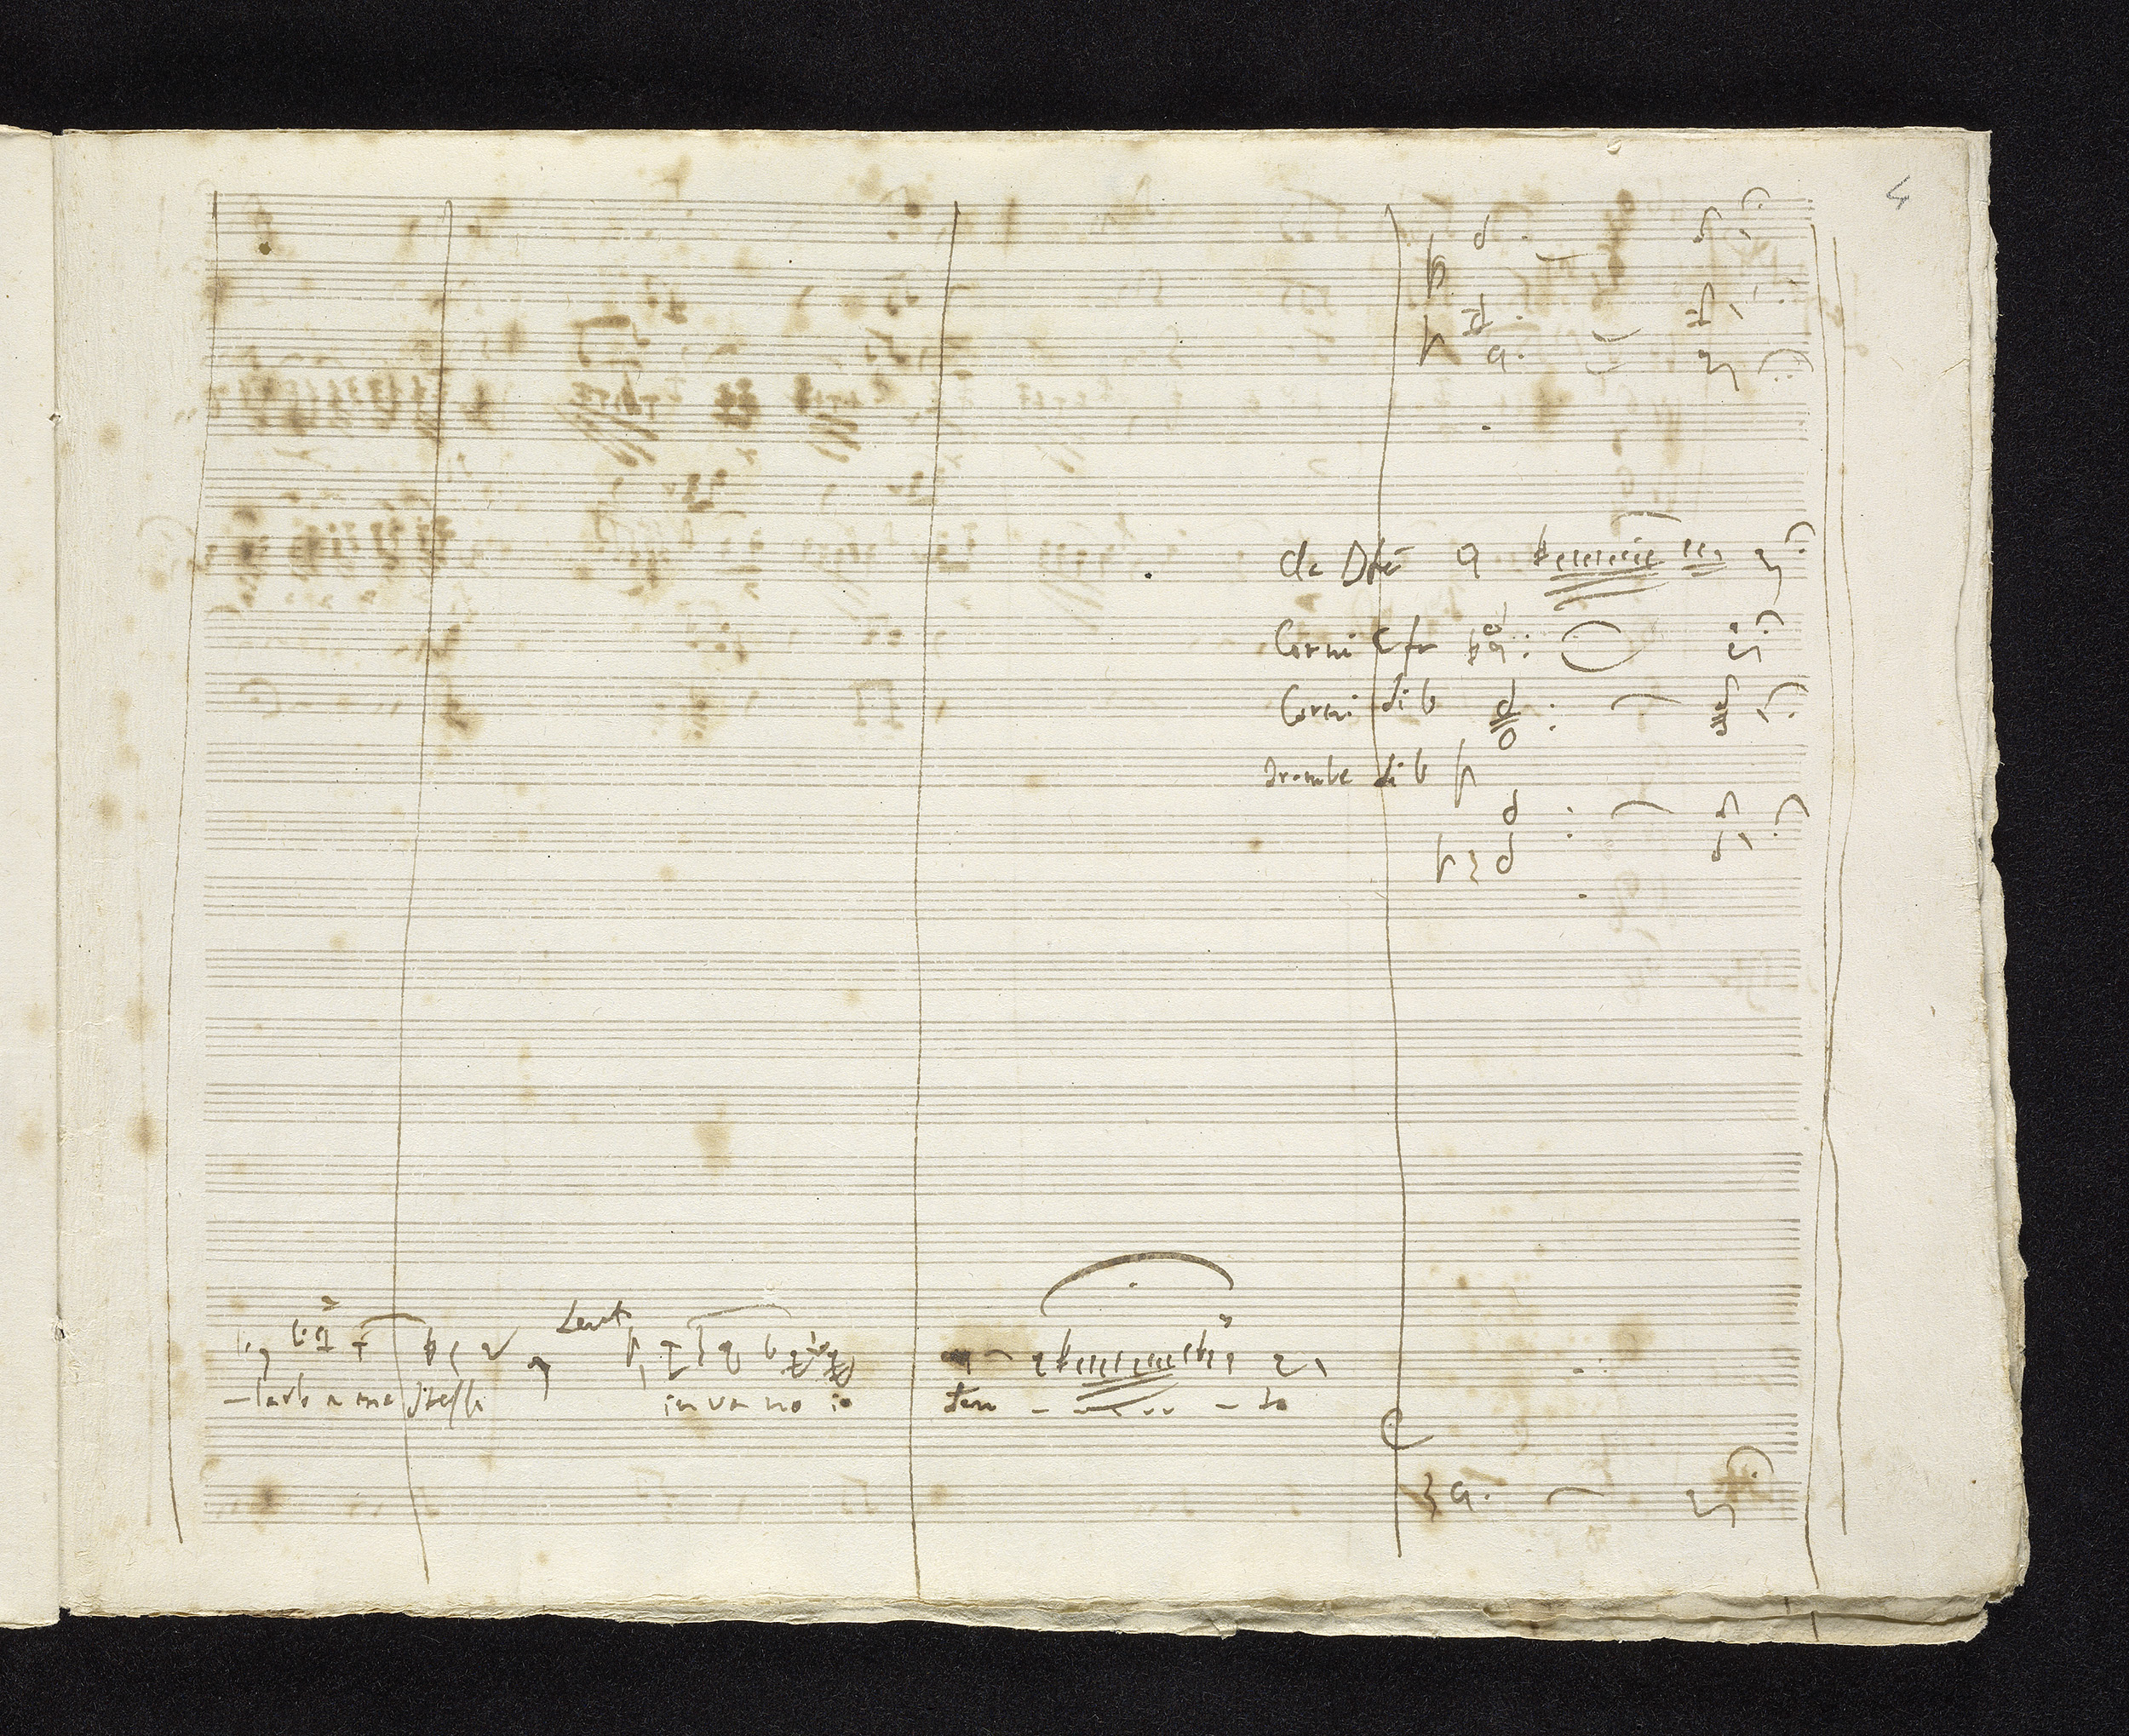 4
Corni
Corni di b
Trombe di b
Lent
-larlo a me stesso in vano io ten - - - - to